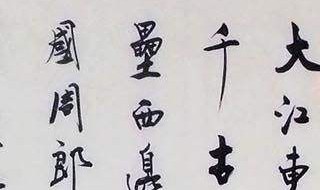 大江東
千古
壘西邊
國周郎